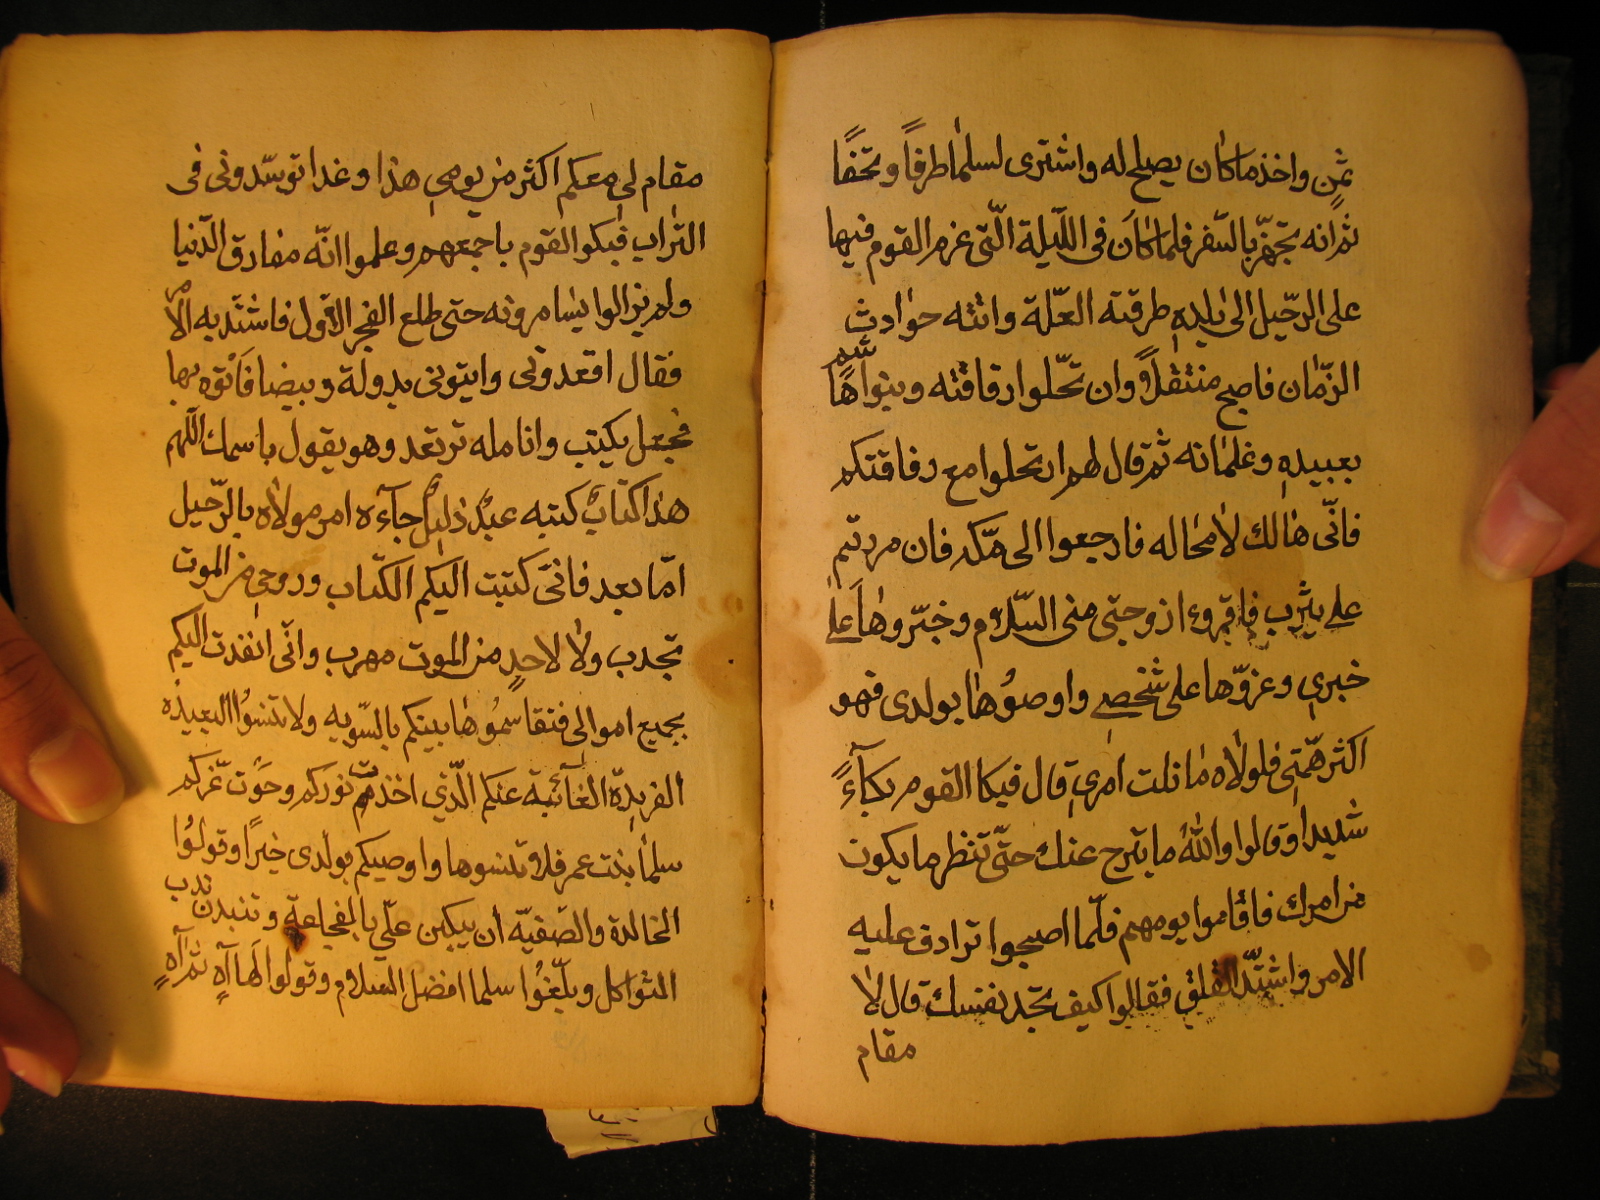 ثمن واخذ ماكان يصلح له واشترى لسلما طرفًا وتحفًا
ثم انه تجهّز بالسّفر فلما كان فى اللّيلة الّتى عزم القوم فيها
على الرّحيل الى بلده طرقته العلّة واتته حوادث
الزّمان فاصبح منثقلاً وان تحّلوا رفاقته وبنواهاشم
بعبيده وغلمانه ثم قال لهم ارتحلوا مع رفاقتكم
فانّى هالك لامحاله فارجعوا الى مكّه فان مررتم
على يثرب فاقروء ازوجتى منى السّلام وخبّروها على
خبرى وعزوّها على شخصى واوصوُها بولدى فهو
اكثر همّتى فلولاه ما نلت امرى قال فبكا القوم بكآءً
شديداً وقالوا واللهُ ما يترح عنك حتّى تنظر ما يكون
من امرك فاقاموا يومهم فلّما اصبحوا ترادف عليه
الامر واشتدّ القلق فقالوا كيف تجد نفسك قال لا
مقام
مقام لى معكم اكثر من يومى هذا وغدا توسّدونى فى
التراب فبكو القوم باجمعهم وعلموا انّه مفارق الدّنيا
ولم يزالوا يسامرونه حتى طلع الفجر الاوّل فاشتد به الامر
فقال اقعدونى وايتونى بدولة وبيضا فَاتوه بها
فجعل يكتب وانامله ترتعد وهو يقول باسمك اللّهم
هذا كتابٌ كتبه عبدٌ ذليلٌ جآءه امر مولاه بالرّحيل
امّا بعد فانىّ كتبت اليكم الكتاب وروحى من الموت
تجدب ولا لاحدٍ من الموت مهرب وانّى انفدت اليكم
بجميع اموالى فتقاسموُها بينكم بالسّويه ولا تنسوُا البعيده
الفريدة الغآئبة عنكم الّذي اخذتم نوركم وحوت عزكم
سلما بنت عمر فلا تنسوها واوصيكم بولدى خيرًا وقولوُا
الخالدة والصّفيّه أن يبكين علّي بالفجاعة وتنبدن ندب
الثواكل وبلّغوُا سلما افضل السلام وقولوا لها آهٍ ثم آهٍ